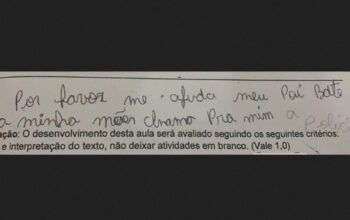 Por favor me ajuda meu Pai Bate
a minha mãe chama Pra mim a Polici
ação: O desenvolvimento desta aula será avaliado seguindo os seguintes critérios:
e interpretação do texto, não deixar atividades em branco. (Vale 1,0)